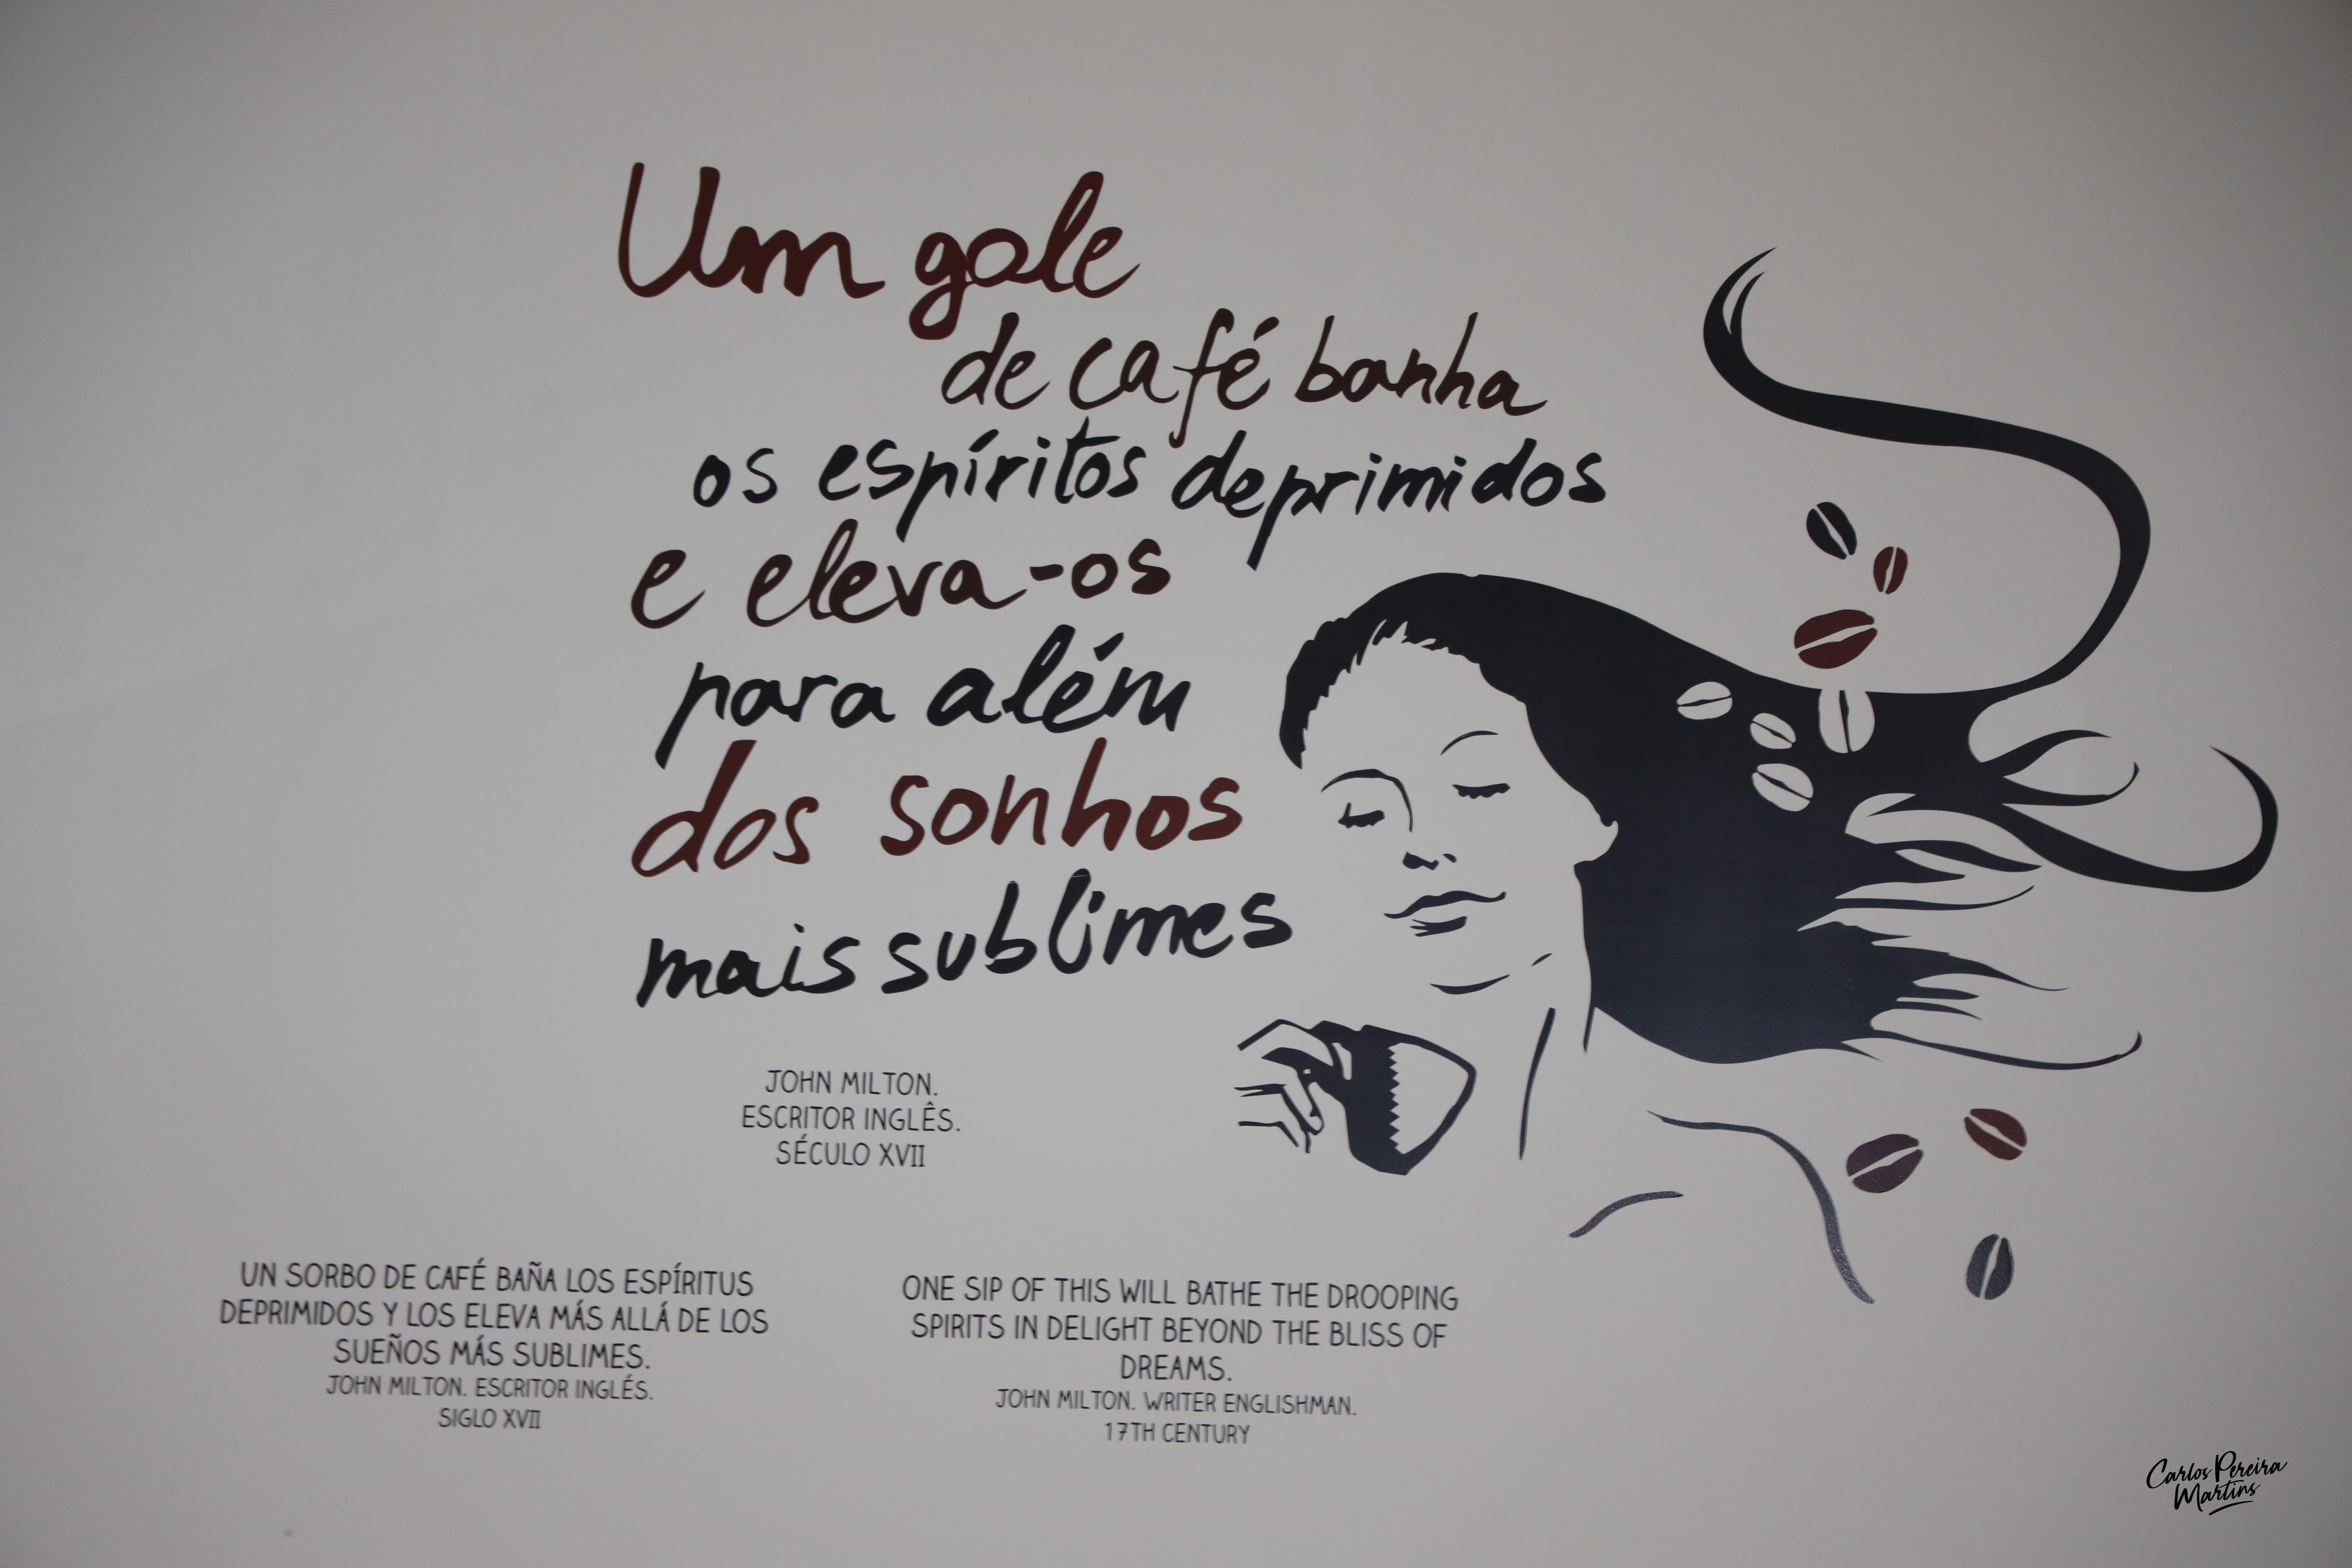 Um gole
de café banha
os espíritos deprimidos
e eleva-os
para além
dos sonhos
mais sublimes
JOHN MILTON.
ESCRITOR INGLÊS.
SÉCULO XVII
UN SORBO DE CAFÉ BAÑA LOS ESPÍRITUS
DEPRIMIDOS Y LOS ELEVA MÁS ALLÁ DE LOS
SUEÑOS MÁS SUBLIMES.
JOHN MILTON. ESCRITOR INGLÉS.
SIGLO XVII
ONE SIP OF THIS WILL BATHE THE DROOPING
SPIRITS IN DELIGHT BEYOND THE BLISS OF
DREAMS.
JOHN MILTON. WRITER ENGLISHMAN.
17TH CENTURY
Carlos Pereira
Martins